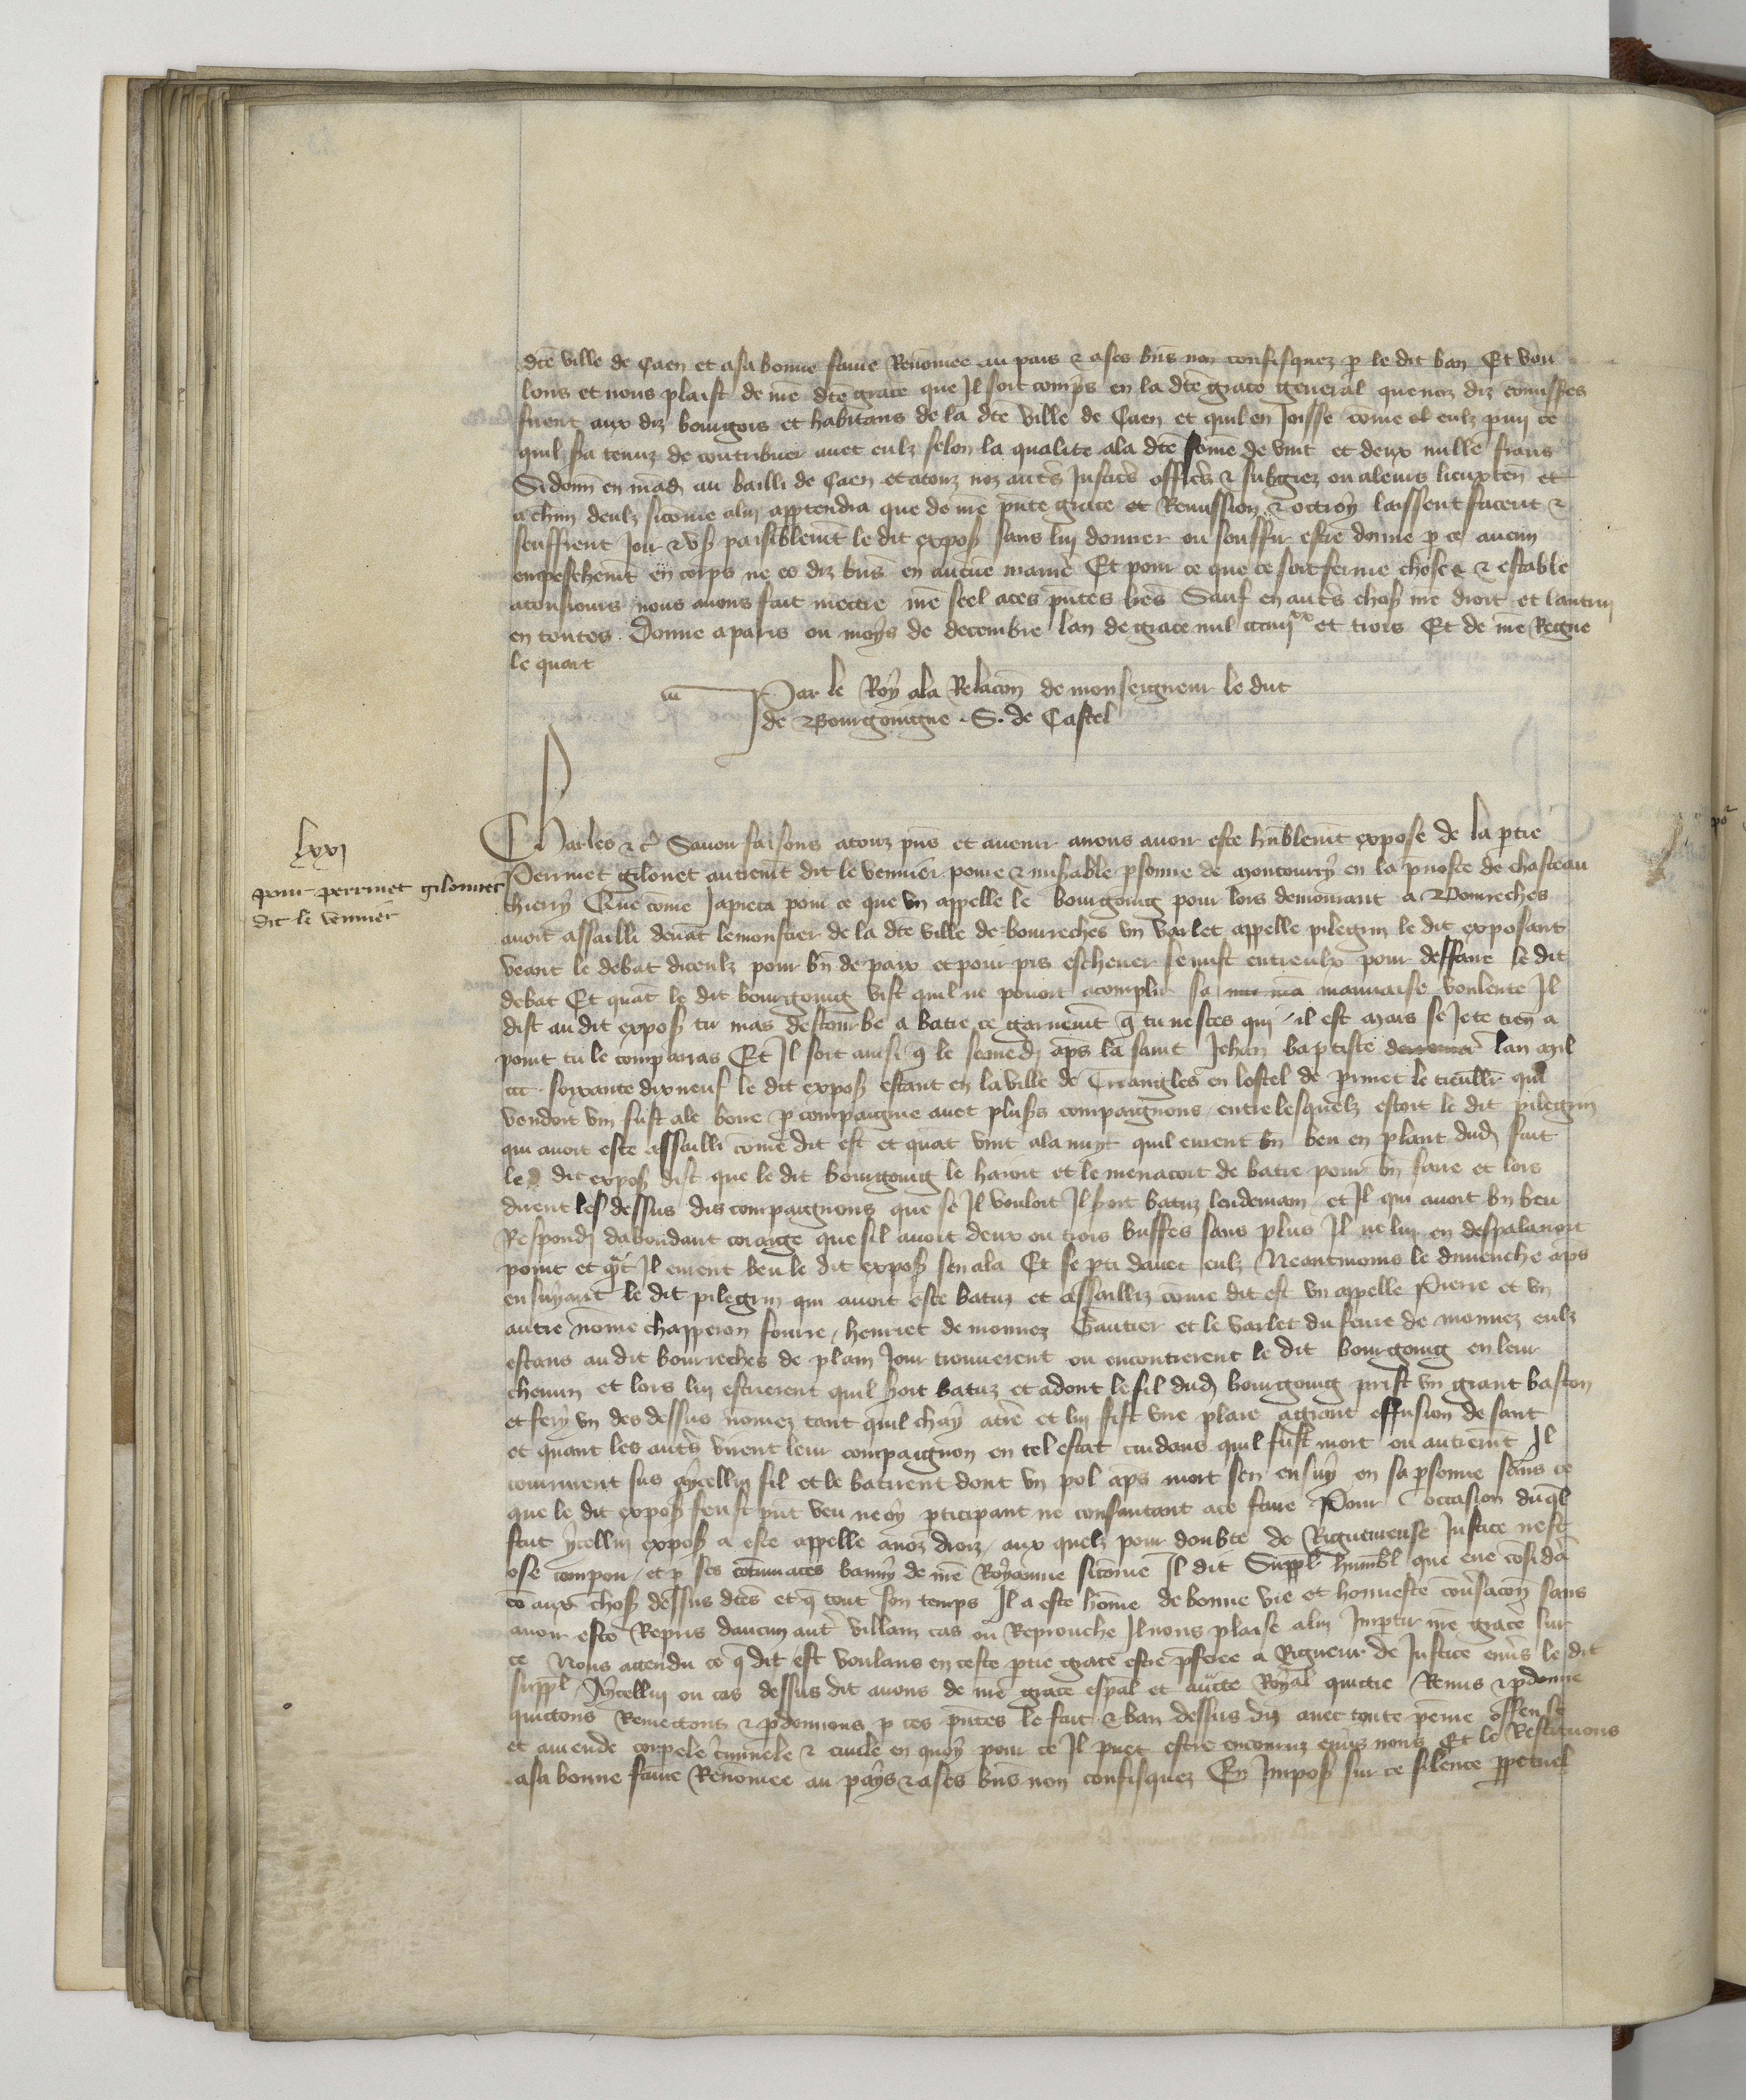 dcē ville de Caen et a sa bonne fame Renōmee au pais & a ses bn̄s non confisquez p le dit ban Et vou
lons et nous plaist de nr̄e dcē grace que Il soit comp̄s en la dcē grace general que noz diz cōmissr̄es
firent aux diz bourgois et habitans de la dcē ville de Caen et quil en Joisse cōme et eulz
quil sa tenuz de contribuer avec eulz selon la qualite a la dcē somē de vint et deux mille frans
Si donn̄ en mād au bailli de Caen et a touz noz autr̄s Justic̄s offic̄s & subgiez ou a leurs lieuxten̄ et
a chūn deulz sicōme a lui apptendra que de nr̄e pn̄te grace et Remission & octroy laissent facent &
seuffrent Jouir & us̄ paisiblemt̄ le dit expos̄ sans lui donner ou souffrir estre donne p ce aucun
empeschemt̄ en corps ne es diz bn̄s en aucune manie᷑ Et pour ce que ce soit ferme chose & estable
a tousiours nous avons fait mectre nr̄e seel a ces pn̄tes lr̄es Sauf en autr̄s chos̄ nr̄e droit et lautrui
en toutes . Donne a paris ou moys de decembre lan de grace mil ccciiijxx et trois Et de nr̄e Regne
le quart
Par le Roy a la Relacōn de monseigneur le duc
de Bourgoingne . S. de Castel
lxxj
pour perrinet gilonnet
dit le vennier
Charles &c̄ Savoir faisons a touz pn̄s et avenir a nous avoir este hūblemt̄ expose de la ptie
Perrinet gilonet autremt̄ dit le vennier povre & mis̄able psonne de moncourry en la p̄voste de chasteau
thierry Que cōme Japieca pour ce que un appelle le bourgoing pour lors demourant a Bourreches
avoit assailli devāt le moustier de la dcē ville de bourreches un varlet appelle pilegrin le dit exposant
veant le debat diceulz pour bn̄ de paix et pour pis eschever se mist entreulx pour deffaire le dit
debat Et quāt le dit bourgoing vist quil ne povoit acomplir sa mauvaise voulente Il
dist au dit expos̄ tu mas destourbe a batre ce garnemt̄ q̄ tu ne sces qui il est mais se Je te tien a
point tu le comparras Et Il soit ainsi q̄ le semedj ap̄s la saint Jehan baptiste lan mil
ccc . soixante dix neuf le dit expos̄ estant en la ville de Triangles en lostel de p̄inet le qui
vendoit vin fust ale boire p compaignie avec plus̄s compaignons entre lesquelz estoit le dit pilegrin
qui avoit este assailli cōme dit est et quāt vint a la nuyt quil eurent bn̄ beu en plant dud fait
le dit expos̄ dist que le dit bourgoing le haioit et le menacoit de batre pour bn̄ faire et lors
dirent les dessus dis compaignons que se Il vouloit Il s̄oit batuz lendemain et Il qui avoit bn̄ beu
Respondj dabondant corage que sil avoit deux ou trois buffes sans plus Il ne lui en desplairoit
point et q̄nt Il eurent beu le dit expos̄ sen ala Et se pti davec eulz Neantmoins le dimenche ap̄s
ensuyant le dit pilegrin qui avoit este batuz et assailliz cōme dit est un appelle Pierre et un
autre nōme chapperon fourre , henriet de monnez Gautier et le varlet du fevre de monnez eulz
estans au dit bourreches de plain Jour trouverent ou encontrerent le dit bourgoing en leur
chemin et lors lui escrierent quil s̄oit batuz et adont le fil dud bourgoing prist un grant baston
et fery un des dessus nōmez tant quil chay a tr̄e et lui fist une plaie a grant effusion de sanc
et quant les autr̄s virent leur compaignon en tel estat cuidans quil fust mort ou autremt̄ Il
coururent sus a ycellui fil et le batirent dont un pol ap̄s mort sen ensuy en sa psonne sans ce
que le dit expos̄ feust pn̄t veu ne oy pticipant ne consentant a ce faire Pour loccasion duq̄l
fait ycellui expos̄ a este appelle a noz droiz aux quelz pour doubte de Rigueureuse Justice nest
ose compoir et p ses cōtumaces banny de nr̄e Royaume sicōme Il dit Suppl̄ humbl̄ que eue cōsid̄a
cō aux chos̄ dessus dcēs et q̄ tout son temps Il a este hōme de bonne vie et honneste cōv̄sacōn sans
avoir este Repris daucun aut̄ villain cas ou Reprouche Il nous plaise a lui Imptir nr̄e grace sur
ce Nous actendu ce q̄ dit est voulans en ceste ptie grace estre p̄feree a Rigueur de Justice env̄s le dit
suppl̄ / A ycellui ou cas dessus dit avons de nr̄e grace esp̄al et aucte Royal quictie Remis & pdonne
quictons Remectons & pdonnons p ces pn̄tes le fait & ban dessus diz avec toute peine offense
et amende corpele c̄minele & civile en quoy pour ce Il puet estre encouruz env̄s nous Et le Restituons
a sa bonne fame Renōmee au pays & a ses bn̄s non confisquez En Impos̄ sur ce silence ppetuel